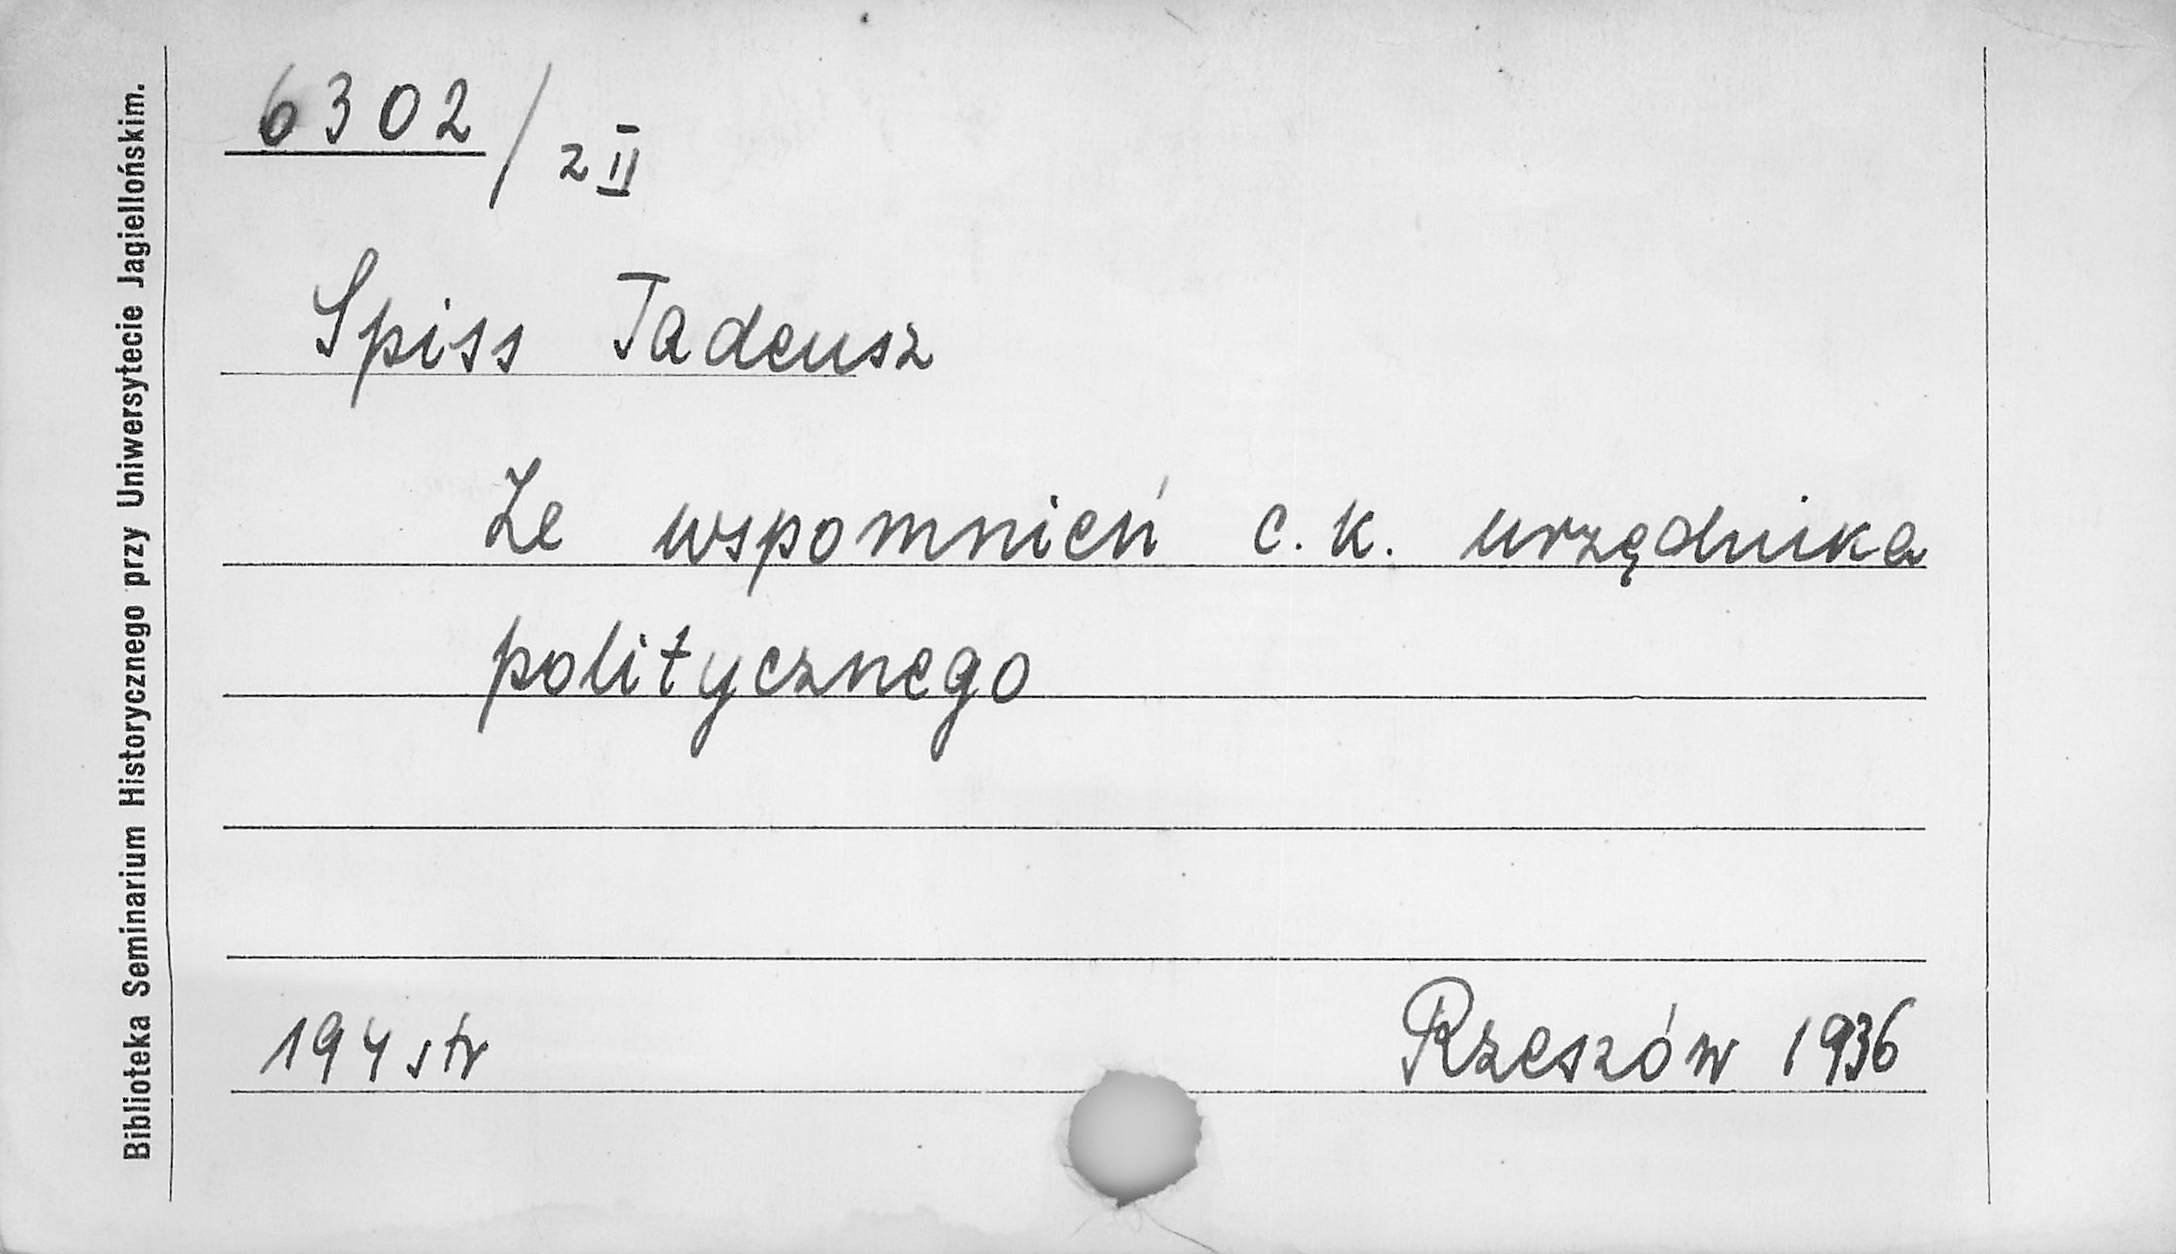 Biblioteka Seminarium Historycznego przy Uniwersytecie Jagiellońskim.
6302/z II
Spiss Tadeusz
Ze wspomnień c. k. urzędnika
politycznego
194 str
Rzeszów 1936